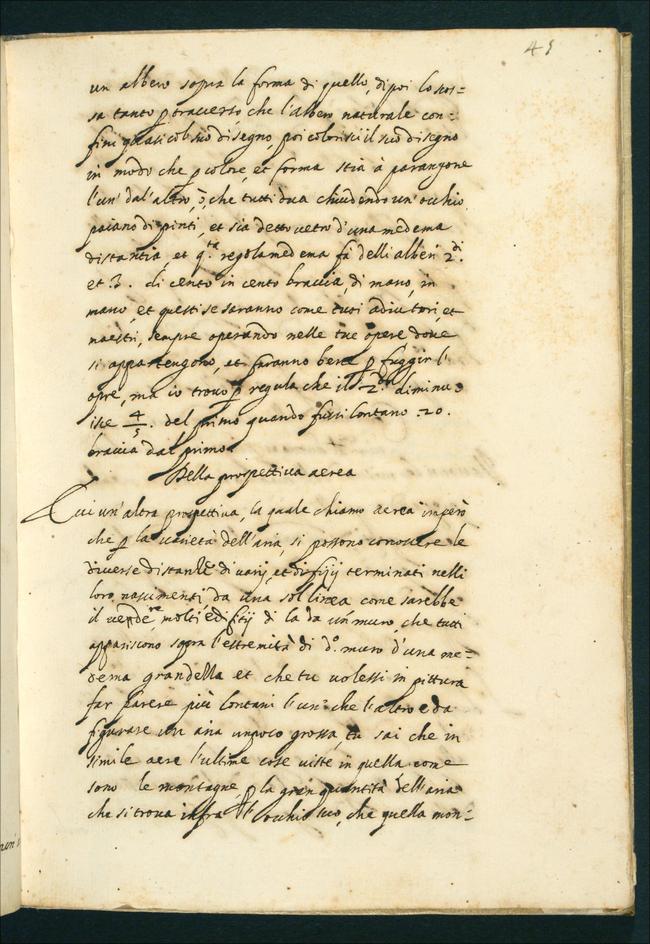 45
un albero sopra la forma di quello, di poi lo scos=
sa tanto p traverso che l'albero naturale con=
fini quasi col suo disegno, poi colorisci il suo disegno
in modo che p colore, et forma stia à parangone
l'un' dal'altro, ò, che tutti dua chiudendo un'occhio
paiano dipinti, et sia detto vetro d'una medema
distantia et q.ta regola medema fà delli alberi 2.di
et .3. di cento in cento braccia, di mano, in
mano, et questi se saranno come tuoi adiutori, et
maestri, sempre operando nelle tue opere dove
si appartengono, et faranno bene p fuggir l'
opre, ma io trovo p regula che il 2.do diminu=
isce 4/5. del primo quando fussi lontano .20.
braccia dal primo.
Della prospettiva aerea
Evi un'altra prospettiva, la quale chiamo aerea imperò
che p la varietà dell'aria, si possono conoscere le
diverse distantie di varij, et difitij terminati nelli
loro nascimenti da una sol linea, come sarebbe
il vedere molti edifitij di la da un'muro, che tutti
appariscono sopra l'estremità di d.o muro d'una me=
dema grandezza et che tu volessi in pittura
far parere più lontani l'un' che l'altro è da
figurare un aria unpoco grossa, tu sai che in
simile aere l'ultime cose viste in quella come
sono le montagne, p la gran quantità dell'aria
che si trova infra l'occhio tuo, che quella mon=